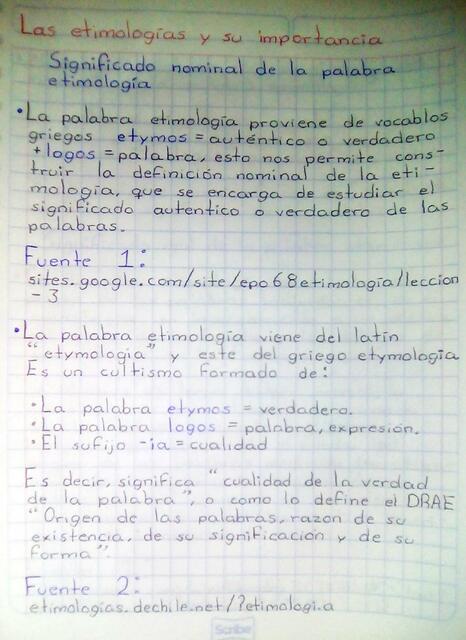 Las etimologías y su importancia
Significado nominal de la palabra
etimología
•La palabra etimología proviene de vocablos
griegos etymos = auténtico o verdadero
+ logos = palabra, esto nos permite cons-
truir la definición nominal de la eti-
mología, que se encarga de estudiar el
significado autentico o verdadero de las
palabras.
Fuente 1:
sites.google.com/site/epo68etimología/leccion
-3
•La palabra etimología viene del latín
"etymologia" y este del griego etymología
Es un cultismo formado de:
•La palabra etymos = verdadero.
•La palabra logos = palabra, expresión.
•El sufijo -ia = cualidad
Es decir, significa "cualidad de la verdad
de la palabra", o como lo define el DRAE
"Origen de las palabras, razon de su
existencia, de su significación y de su
forma".
Fuente 2:
etimologías.dechile.net/?etimologi.a
Scribe